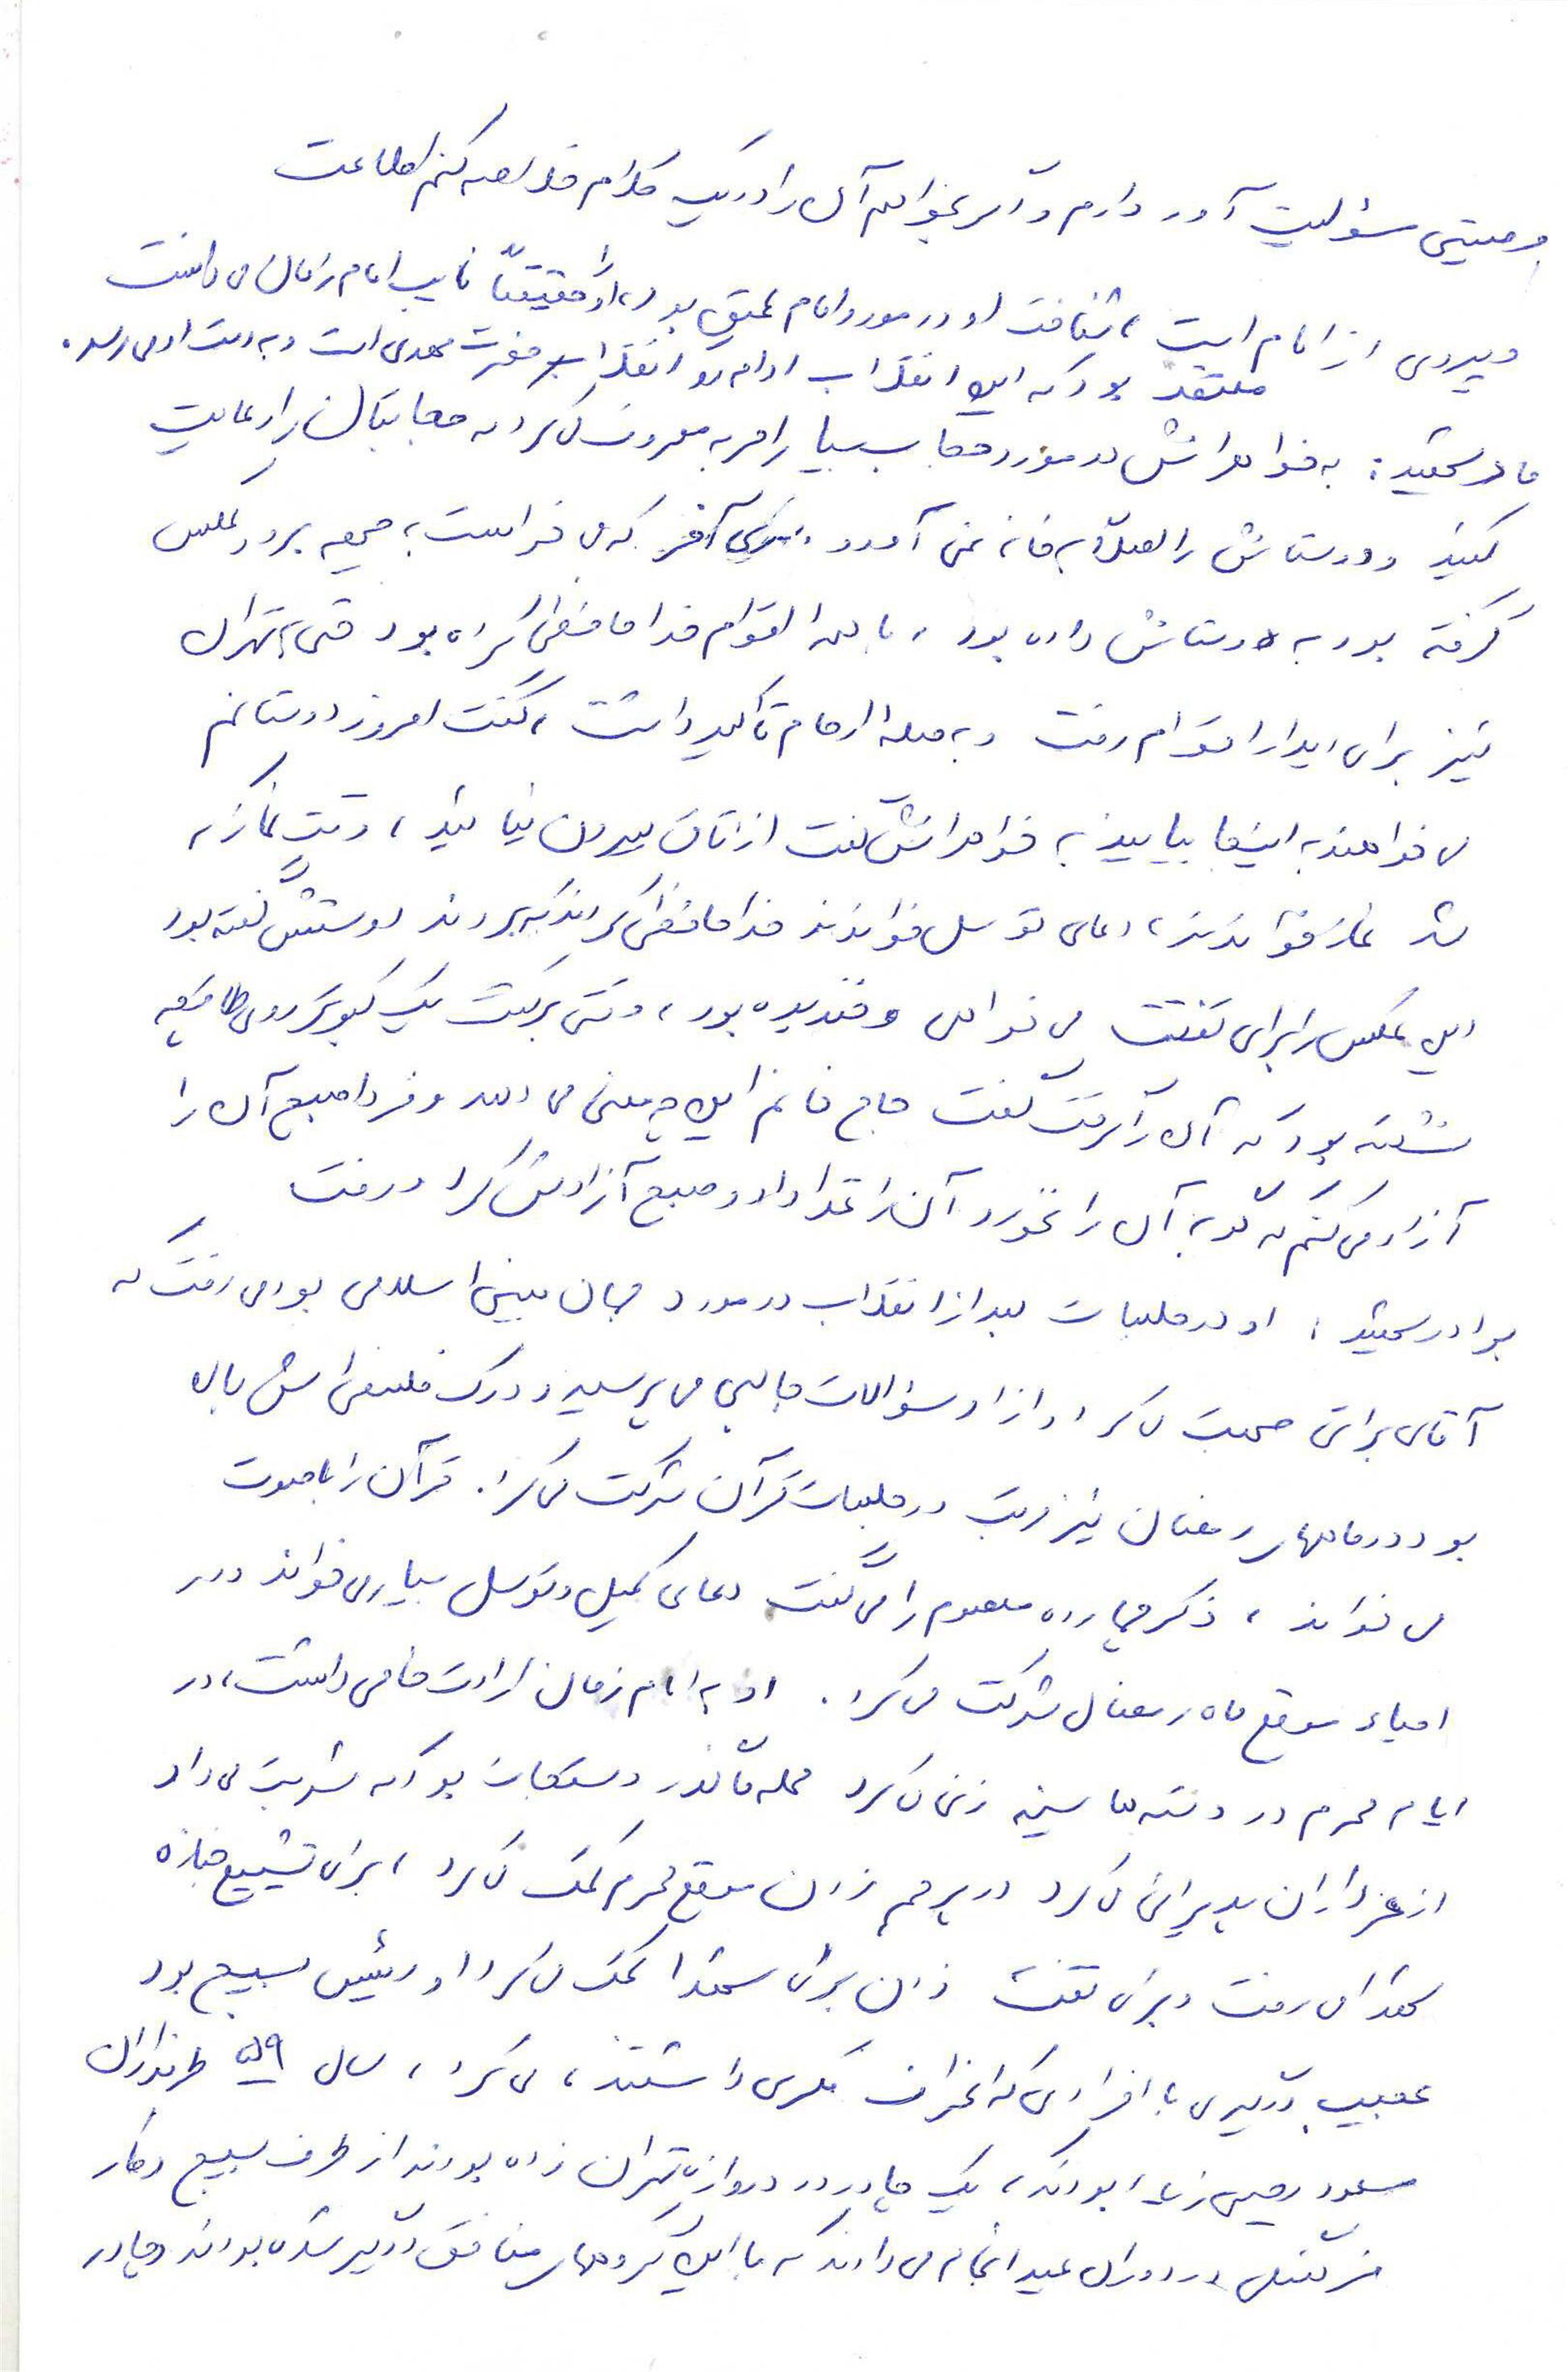 وصیتی مسؤلیت آور دارم و اگر بخواهم آن را در یک کلام خلاصه کنم اطاعت
و پیروی از امام است، شناخت او در مورد امام عمیق بود، او را حقیقتاً نایب امام زمان می دانست
معتقد بود که این انقلاب ادامه رو انقلاب حضرت مهدی است و به دست او می رسد.
مادر شهید: به خواهرانش در مورد حجاب بسیار امر به معروف می کرد که حجابتان را رعایت
کنید و دوستانش را اصلاً به خانه نمی آورد، آخر که می خواست به جبهه برود عکس
گرفته بود به دوستانش داده بود، با همه اقوام خداحافظی کرده بود حتی به تهران
نیز برای دیدار اقوام رفت و به صله ارحام تأکید داشت، گفت امروز دوستانم
می خواهند به اینجا بیایید به خواهرانش گفت از اتاق بیرون نیائید، وقت نماز که
شد نماز خواندند، دعای توسل خواندند خداحافظی کردند که بروند دوستش گفته بود
این عکس را برای تفتت می خواهی و خندیده بود، وقتی برگشت یک کبوتر روی طاقچه
نشسته بود که آن را گرفت گفت حاج خانم این چه معنی می دهد و فردا صبح آن را
آزاد می کنم که گربه آن را نخورد آن را غذا داد و صبح آزادش کرد و رفت
برادر شهید: او در جلسات بعد از انقلاب در مورد جهان بینی اسلامی بود می رفت که
آقای براتی صحبت می کرد و از او سؤالات جالبی می پرسید و درک فلسفی اش بالا
بود و در ماههای رمضان نیز مرتب در جلسات قرآن شرکت می کرد. قرآن را با صوت
می خواند، ذکر چهارده معصوم را می گفت دعای کمیل و توسل بسیار می خواند و در
احیاء موقع ماه رمضان شرکت می کرد. او به امام زمان ارادت خاصی داشت، در
ایام محرم در دسته ها سینه زنی می کرد محله ما نذر دستجات بود که شربت می داد
از عزاداران پذیرایی می کرد در پرچم زدن موقع محرم کمک می کرد، برای تشییع جنازه
شهدا می رفت و برای زدن برای شهدا کمک می کرد او رئیس بسیج بود
عجیب درگیری با افرادی که انحراف فکری داشتند، می کرد، سال ۵۹ طرفداران
مسعود رجوی زیاد بودند، یک چادر در دروازه تهران زده بودند از طرف بسیج و کار
فرهنگی در دوران عید انجام می دادند که با این گروههای منافق درگیر شده بودند و چادر